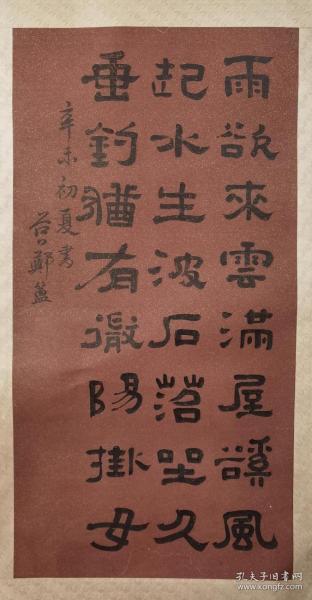 雨欲來雲滿屋谿風
起水生波石苔坐久
垂釣猶有微陽掛女
辛未初夏書
谷口鄭簠
孔夫子旧书网
www.kongfz.com